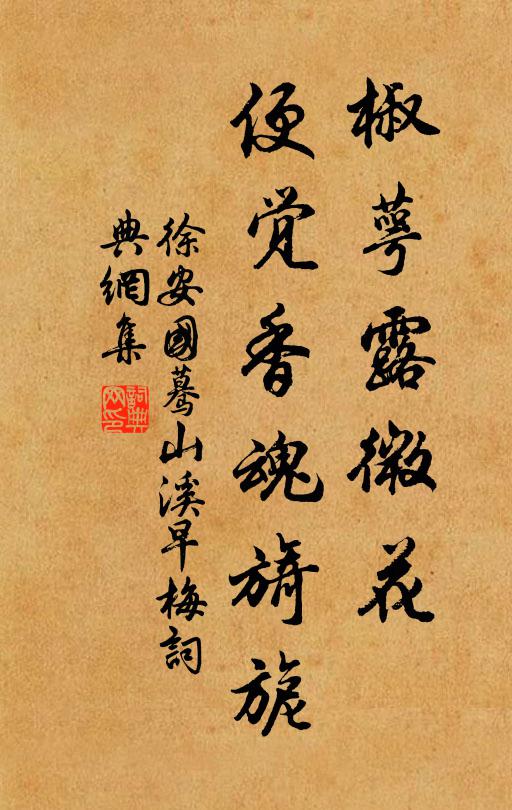 椒萼露微花
便觉香魂旖旎
徐安國蓦山溪早梅詞
典網集
詞典網印